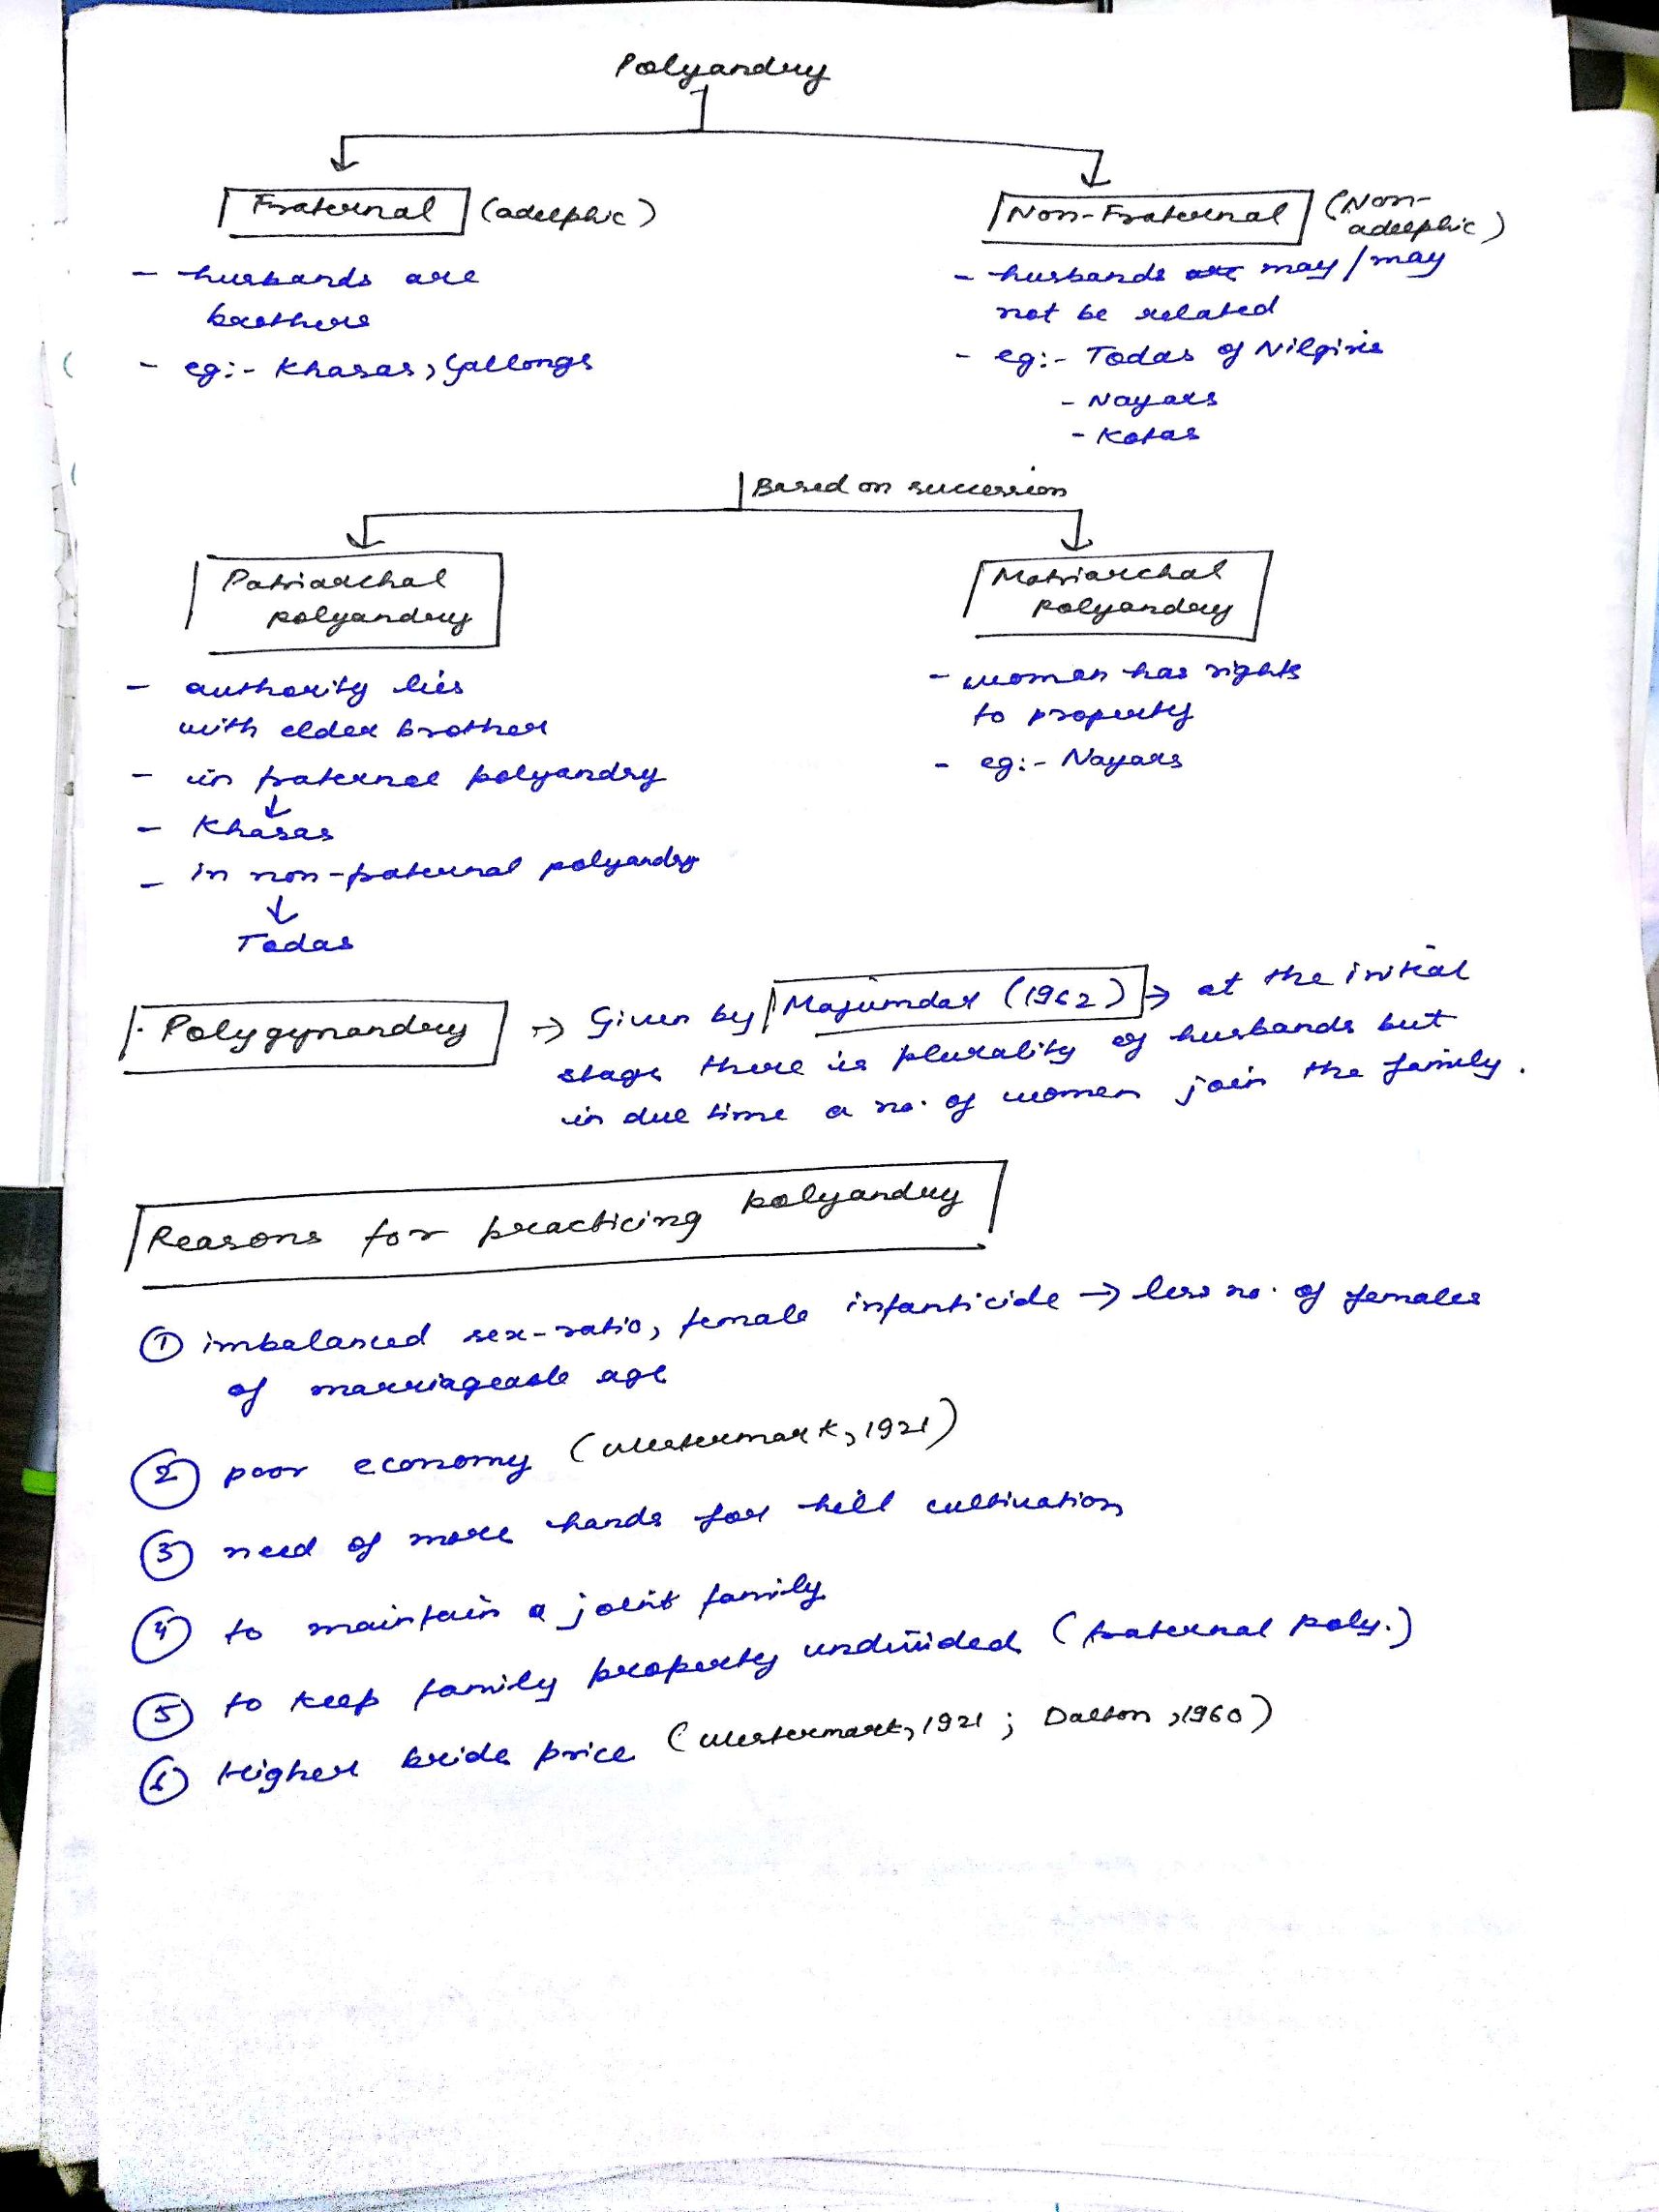 Polyandry
Fraternal (adelphic)
- husbands are
brothers
- eg:- Khasas, Gallongs
Non-Fraternal (Non-
adelphic)
- husbands are may/may
not be related
- eg:- Todas of Nilgiris
- Nayars
- Kotas
Based on succession
Patriarchal
polyandry
- authority lies
with elder brother
- in fraternal polyandry
↓
- Khasas
- in non-fraternal polyandry
↓
Todas
Matriarchal
polyandry
- women has rights
to property
- eg:- Nayars
. Polygynandry → Given by Majumdar (1962) → at the initial
stage there is plurality of husbands but
in due time a no. of women join the family.
Reasons for practicing polyandry
① imbalanced sex-ratio, female infanticide → less no. of females
of marriageable age
② poor economy (Westermark, 1921)
③ need of more hands for hill cultivation
④ to maintain a joint family
⑤ to keep family property undivided (fraternal poly.)
⑥ Higher bride price (Westermark, 1921 ; Dalton, 1960)